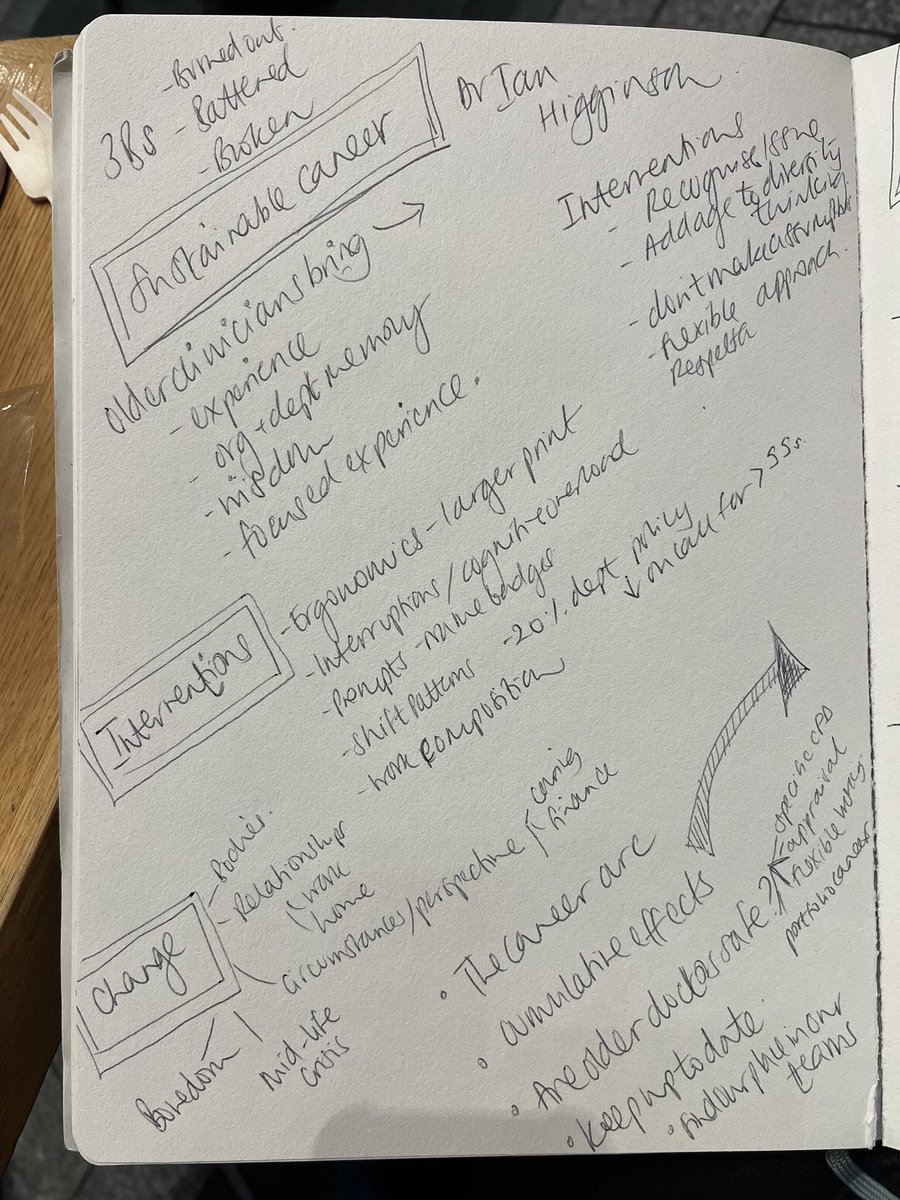 3Bs - Burned out.
- Battered
- Broken
Dr Ian
Higginson
Sustainable career
older clinicians bring →
- experience
- org + dept memory
- wisdom
- focused experience.
Interventions
- Recognise issue
- Add age to diversity
thinking
- don't make assumptions
- flexible approach.
Respect
Interventions
- Ergonomics - larger print
- Interruptions/cognitive overload
- Prompts - name badges
- shift patterns - 20% dept policy
↓ on call for >55s.
- work composition
Change
- Bodies.
- Relationships
work
home
circumstances/perspective
caring
finance
mid-life
crisis
Boredom
• The career arc
• cumulative effects
• Are older doctors safe?
- specific CPD
- appraisal
- flexible working
portfolio career
• Keep up to date.
• find our place in our
teams